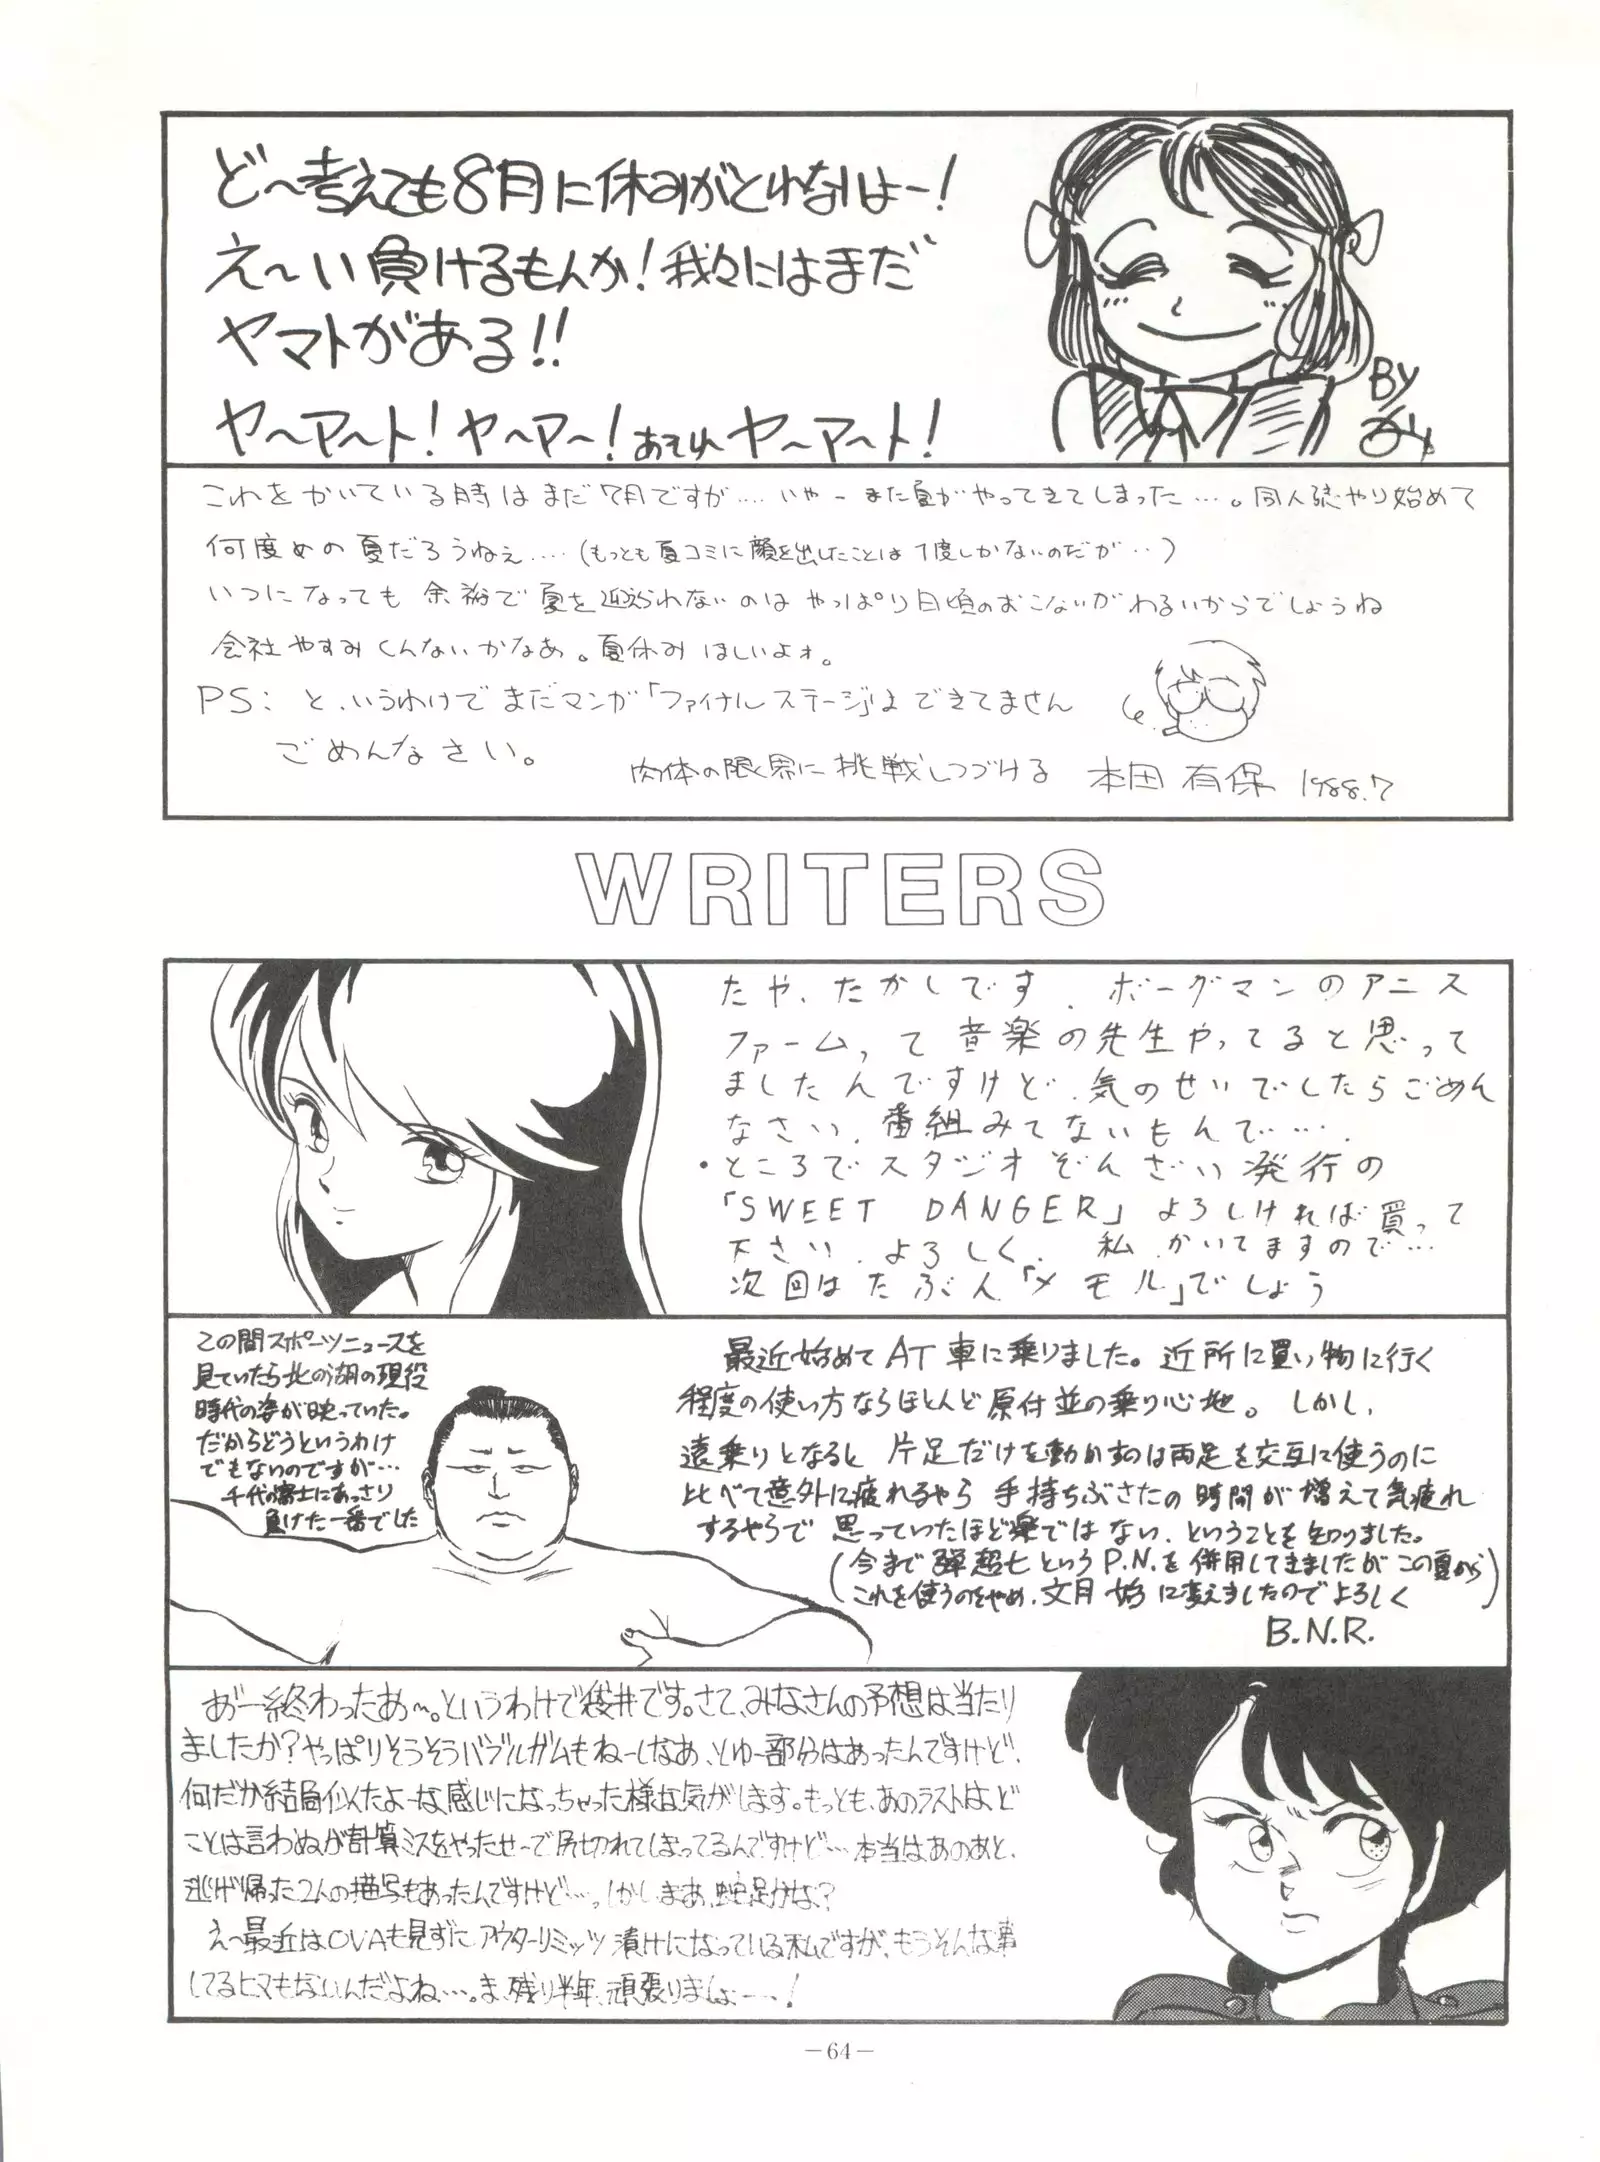 ど〜考えても8月に休みがとれないよー!
え〜い負けるもんか!我々にはまだ
ヤマトがある!!
ヤ〜ア〜ト!ヤ〜ア〜! ヤ〜ア〜ト!
BY
これをかいている時はまだ7月ですが……いやーまた夏がやってきてしまった……。同人誌やり始めて
何度めの夏だろうねぇ……(もっとも夏コミに顔を出したことは1度しかないのだが‥)
いつになっても余裕で夏を迎えられないのはやっぱり日頃のおこないがわるいからでしょうね
会社やすみくんないかなあ。夏休みほしいよォ。
PS: と、いうわけでまだマンガ「ファイナルステージ」はできてません
ごめんなさい。
肉体の限界に挑戦しつづける 本田 有保 1988.7
WRITERS
たや、たかしです。ボーグマンのアニス
ファームって音楽の先生やってると思って
ましたんですけど、気のせいでしたらごめん
なさい、番組みてないもんで……
・ところでスタジオぞんざい発行の
「SWEET DANGER」よろしければ買って
下さい、よろしく、私、かいてますので…
次回はたぶん「メモル」でしょう
この間スポーツニュースを
見ていたら北の湖の現役
時代の姿が映っていた。
だからどうというわけ
でもないのですが…
千代の富士にあっさり
負けた一番でした
最近始めてAT車に乗りました。近所に買い物に行く
程度の使い方ならほとんど原付並の乗り心地。しかし、
遠乗りとなると片足だけを動かすのは両足を交互に使うのに
比べて意外に疲れるやら手持ちぶさたの時間が増えて気疲れ
するやらで思っていたほど楽ではない、ということを知りました。
(今まで弾超七というP.N.を併用してきましたがこの夏から
これを使うのをやめ、文月 始に変えましたのでよろしく)
B.N.R.
あ゛ー終わったあ〜。というわけで袋井です。さて、みなさんの予想は当たり
ましたか?やっぱりそうそうバブルガムもねーしなあ、とゆー部分はあったんですけど、
何だか結局似たよーな感じになっちゃった様な気がします。もっとも、あのラストは、ど
ことは言わぬが計算ミスをやったせーで尻切れてしまってるんですけど…本当はあのあと、
逃げ帰った2人の描写もあったんですけど…、しかしまあ、蛇足かな?
え〜最近はOVAも見ずにアウターリミッツ漬けになっている私ですが、もうそんな事
してるヒマもないんだよね…。ま、残り半年、頑張りましょー!
—64—